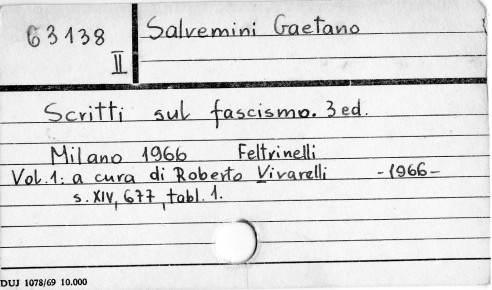 63138
II
Salvemini Gaetano
Scritti sul fascismo. 3 ed.
Milano 1966 Feltrinelli
Vol. 1: a cura di Roberto Vivarelli -1966-
s. XIV, 677, tabl. 1.
DUJ 1078/69 10.000